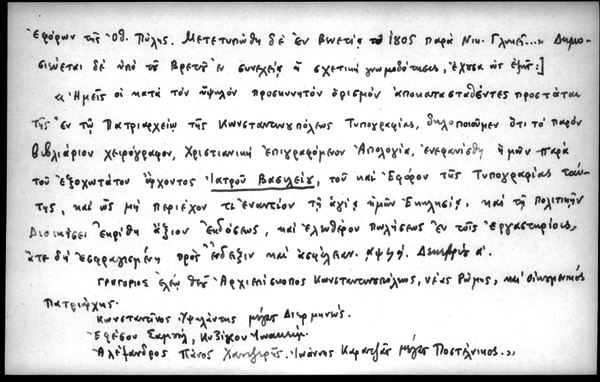 ἐφόρων τῆς Ὀθ. Πύλης. Μετετυπώθη δὲ ἐν Βενετίᾳ τῷ 1805 παρὰ Νικ. Γλυκεῖ...» Δημο-
σιεύεται δὲ ὑπὸ τοῦ Βρετοῦ ἐν συνεχείᾳ ἡ σχετικὴ γνωμοδότησις, ἔχουσα ὡς ἑξῆς:]
«Ἡμεῖς οἱ κατὰ τὸν ὑψηλὸν προσκυνητὸν ὁρισμὸν ἀποκατασταθέντες προστάται
τῆς ἐν τῷ Πατριαρχείῳ τῆς Κωνσταντινουπόλεως Τυπογραφίας, δηλοποιοῦμεν ὅτι τὸ παρὸν
βιβλιάριον χειρόγραφον, Χριστιανικὴ ἐπιγραφόμενον Ἀπολογία, ἐνεφανίσθη ἡμῖν παρὰ
τοῦ ἐξοχωτάτου ἄρχοντος Ἰατροῦ Βασιλείου, τοῦ καὶ Ἐφόρου τῆς Τυπογραφίας ταύ-
της, καὶ ὡς μὴ περιέχον τι ἐναντίον τῇ ἁγίᾳ ἡμῶν Ἐκκλησίᾳ, καὶ τῇ πολιτικῇ
Διοικήσει ἐκρίθη ἄξιον ἐκδόσεως, καὶ ἐλευθέρου πωλήσεως ἐν τοῖς ἐργαστηρίοις,
ἅτε δὴ ἐσφραγισμένη πρὸς ἔνδειξιν καὶ ἀσφάλειαν. αψϟή. Δεκεμβρίου α΄.
Γρηγόριος ἐλέῳ θεοῦ Ἀρχιεπίσκοπος Κωνσταντινουπόλεως, νέας Ρώμης, καὶ οἰκουμενικὸς
Πατριάρχης.
Κωνσταντῖνος Ὑψηλάντης μέγας Διερμηνεύς.
Ἐφέσου Σαμουήλ, Κυζίκου Ἰωακείμ.
Ἀλέξανδρος Πάνος Χαντζερῆς. Ἰωάννης Καρατζᾶς μέγας Ποστέλνικος.»